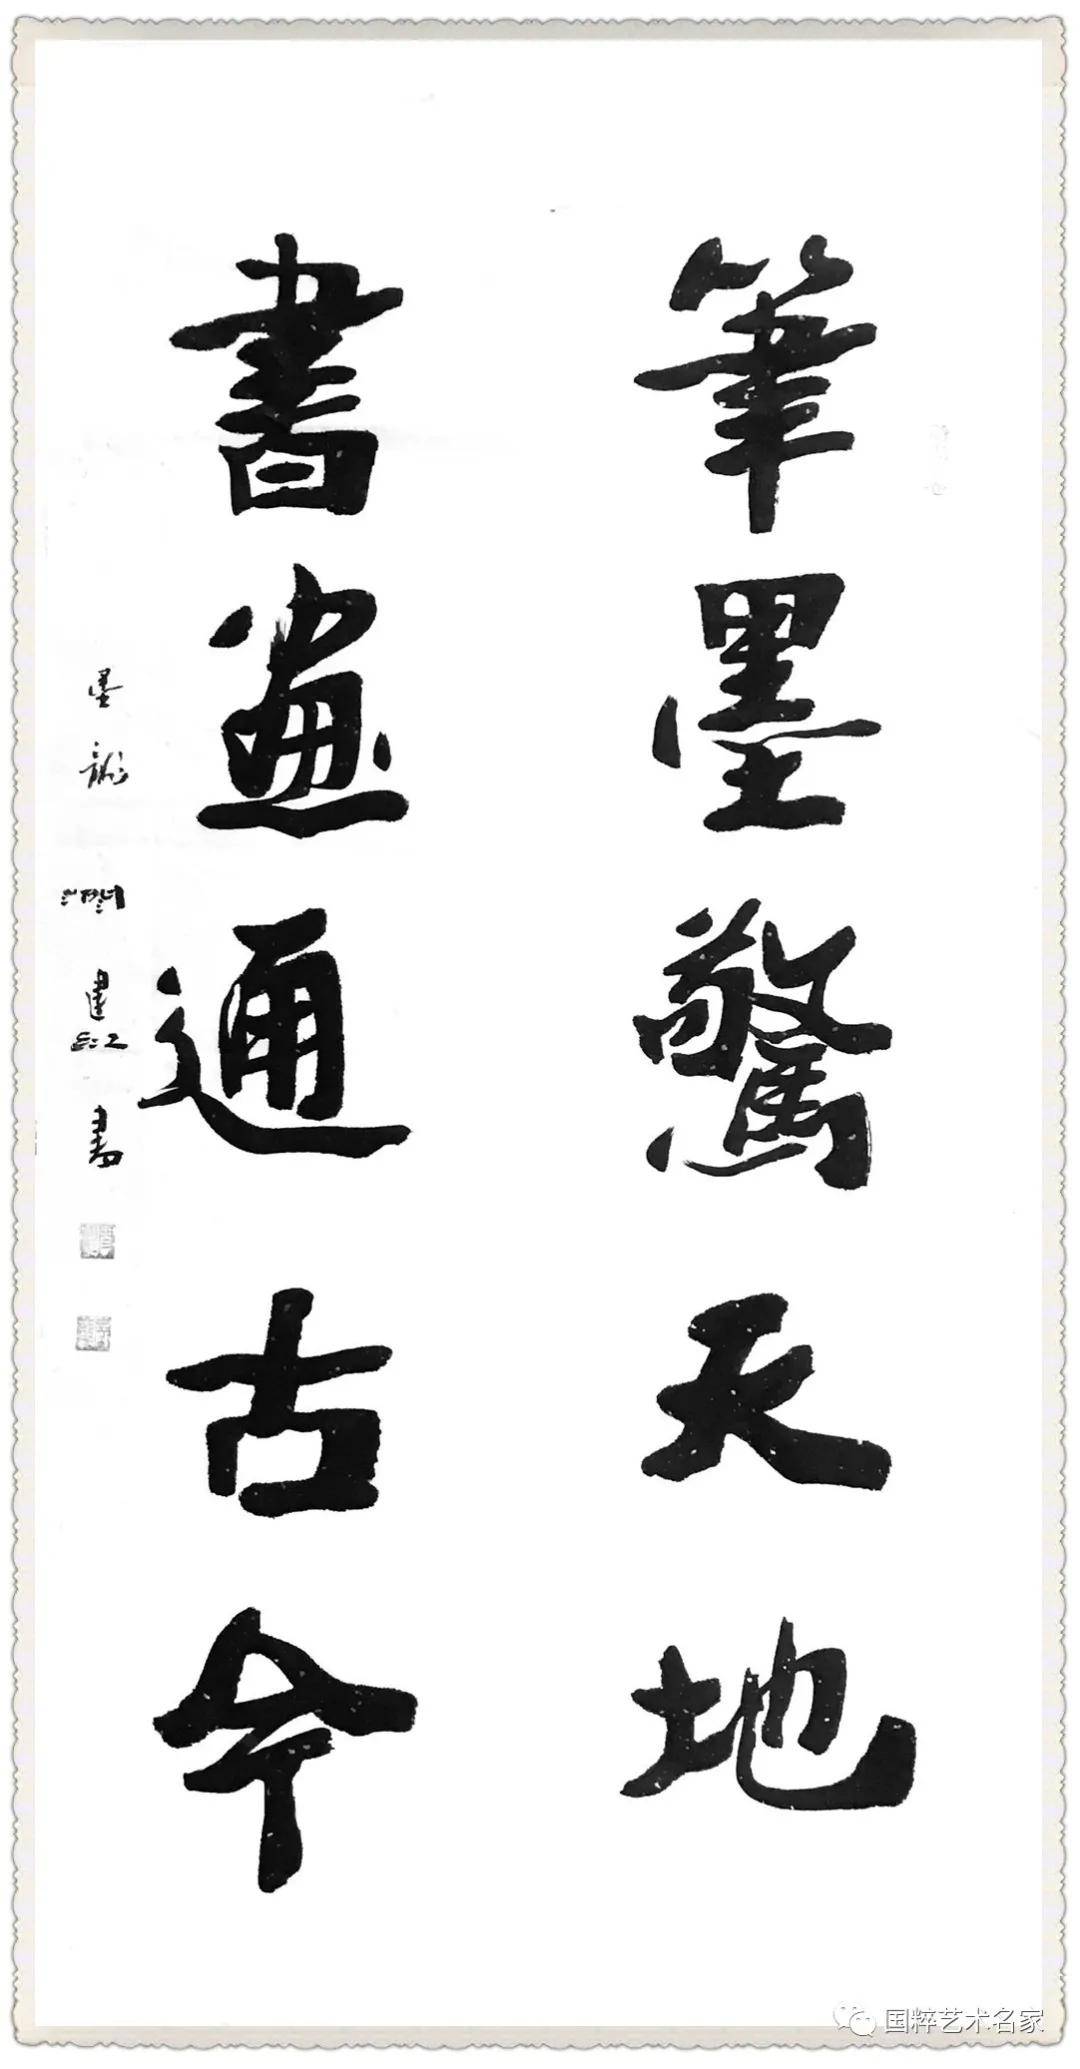 筆墨驚天地
書畫通古今
墨諭 閆建紅 書
国粹艺术名家